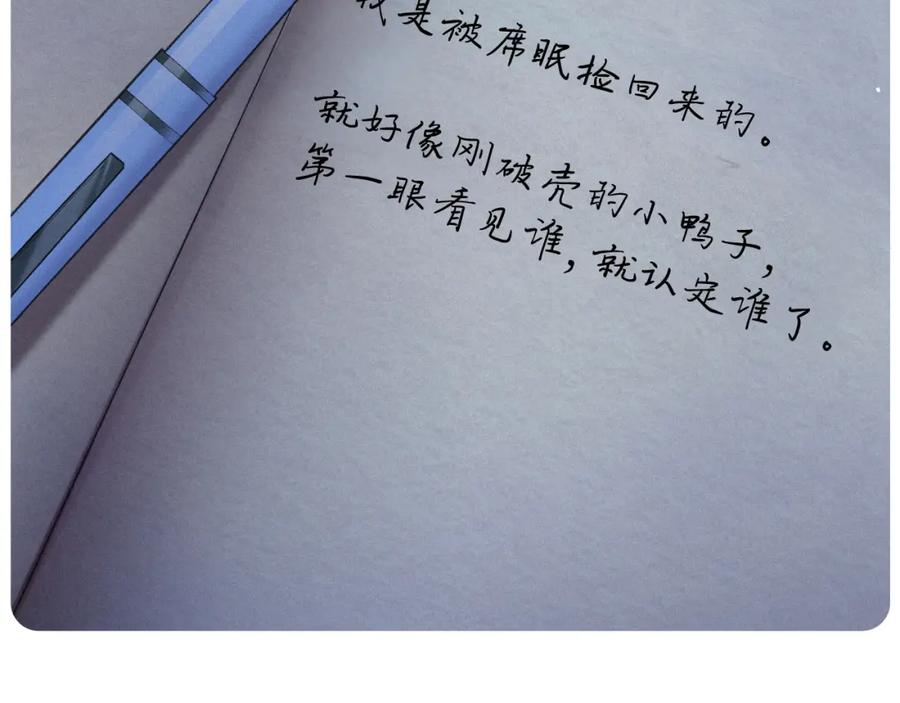 我是被席眠捡回来的。
就好像刚破壳的小鸭子，
第一眼看见谁，就认定谁了。